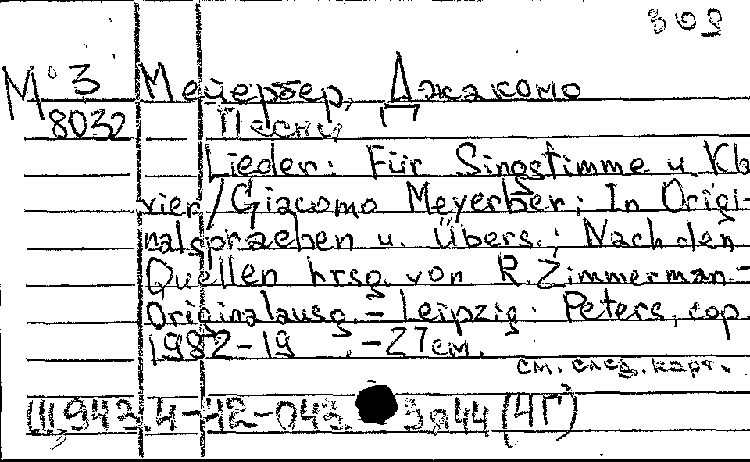 309
М 3 Мейербер, Джакомо
8032 Песни
Lieder: Für Singstimme u. Kla-
vier/Giacomo Meyerbeer; In Origi-
nalsprachen u. Übers.; Nach den
Quellen hrsg. von R. Zimmerman.-
Originalausg. - Leipzig: Peters, cop.
1982-19 .-27см.
см. след. карт.
Ш,943.4-42-043. 3944(4Г)